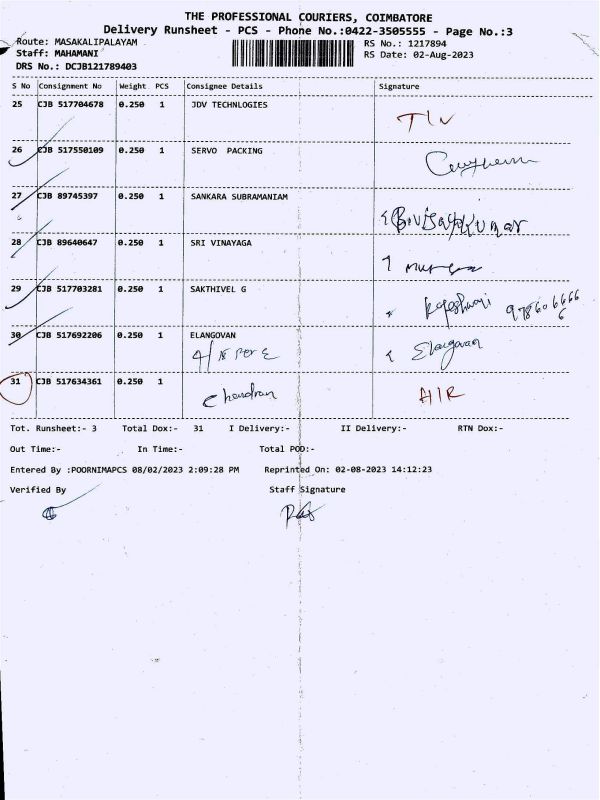 THE PROFESSIONAL COURIERS, COIMBATORE
Delivery Runsheet - PCS - Phone No.:0422-3505555 - Page No.:3
Route: MASAKALIPALAYAM
RS No.: 1217894
Staff: MAHAMANI
RS Date: 02-Aug-2023
DRS No.: DCJB121789403
S No Consignment No Weight PCS Consignee Details Signature
25 CJB 517704678 0.250 1 JDV TECHNLOGIES
26 CJB 517550109 0.250 1 SERVO PACKING
27 CJB 89745397 0.250 1 SANKARA SUBRAMANIAM
28 CJB 89640647 0.250 1 SRI VINAYAGA
29 CJB 517703281 0.250 1 SAKTHIVEL G
30 CJB 517692206 0.250 1 ELANGOVAN Elangovan
31 CJB 517634361 0.250 1 Chandran AIR
Tot. Runsheet:- 3 Total Dox:- 31 I Delivery:- II Delivery:- RTN Dox:-
Out Time:- In Time:- Total POD:-
Entered By :POORNIMAPCS 08/02/2023 2:09:28 PM Reprinted On: 02-08-2023 14:12:23
Verified By Staff Signature